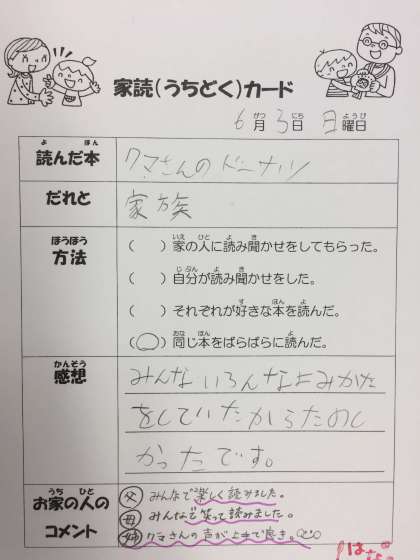 家読(うちどく)カード
6月3日 日曜日
読んだ本 クマさんのドーナツ
だれと 家族
方法 ( )家の人に読み聞かせをしてもらった。
( )自分が読み聞かせをした。
( )それぞれが好きな本を読んだ。
(○)同じ本をばらばらに読んだ。
感想 みんないろんなよみかた
をしていたからたのし
かったです。
お家の人のコメント
父 みんなで楽しく読みました。
母 みんなで笑って読みました。
姉 クマさんの声が上手で良き。